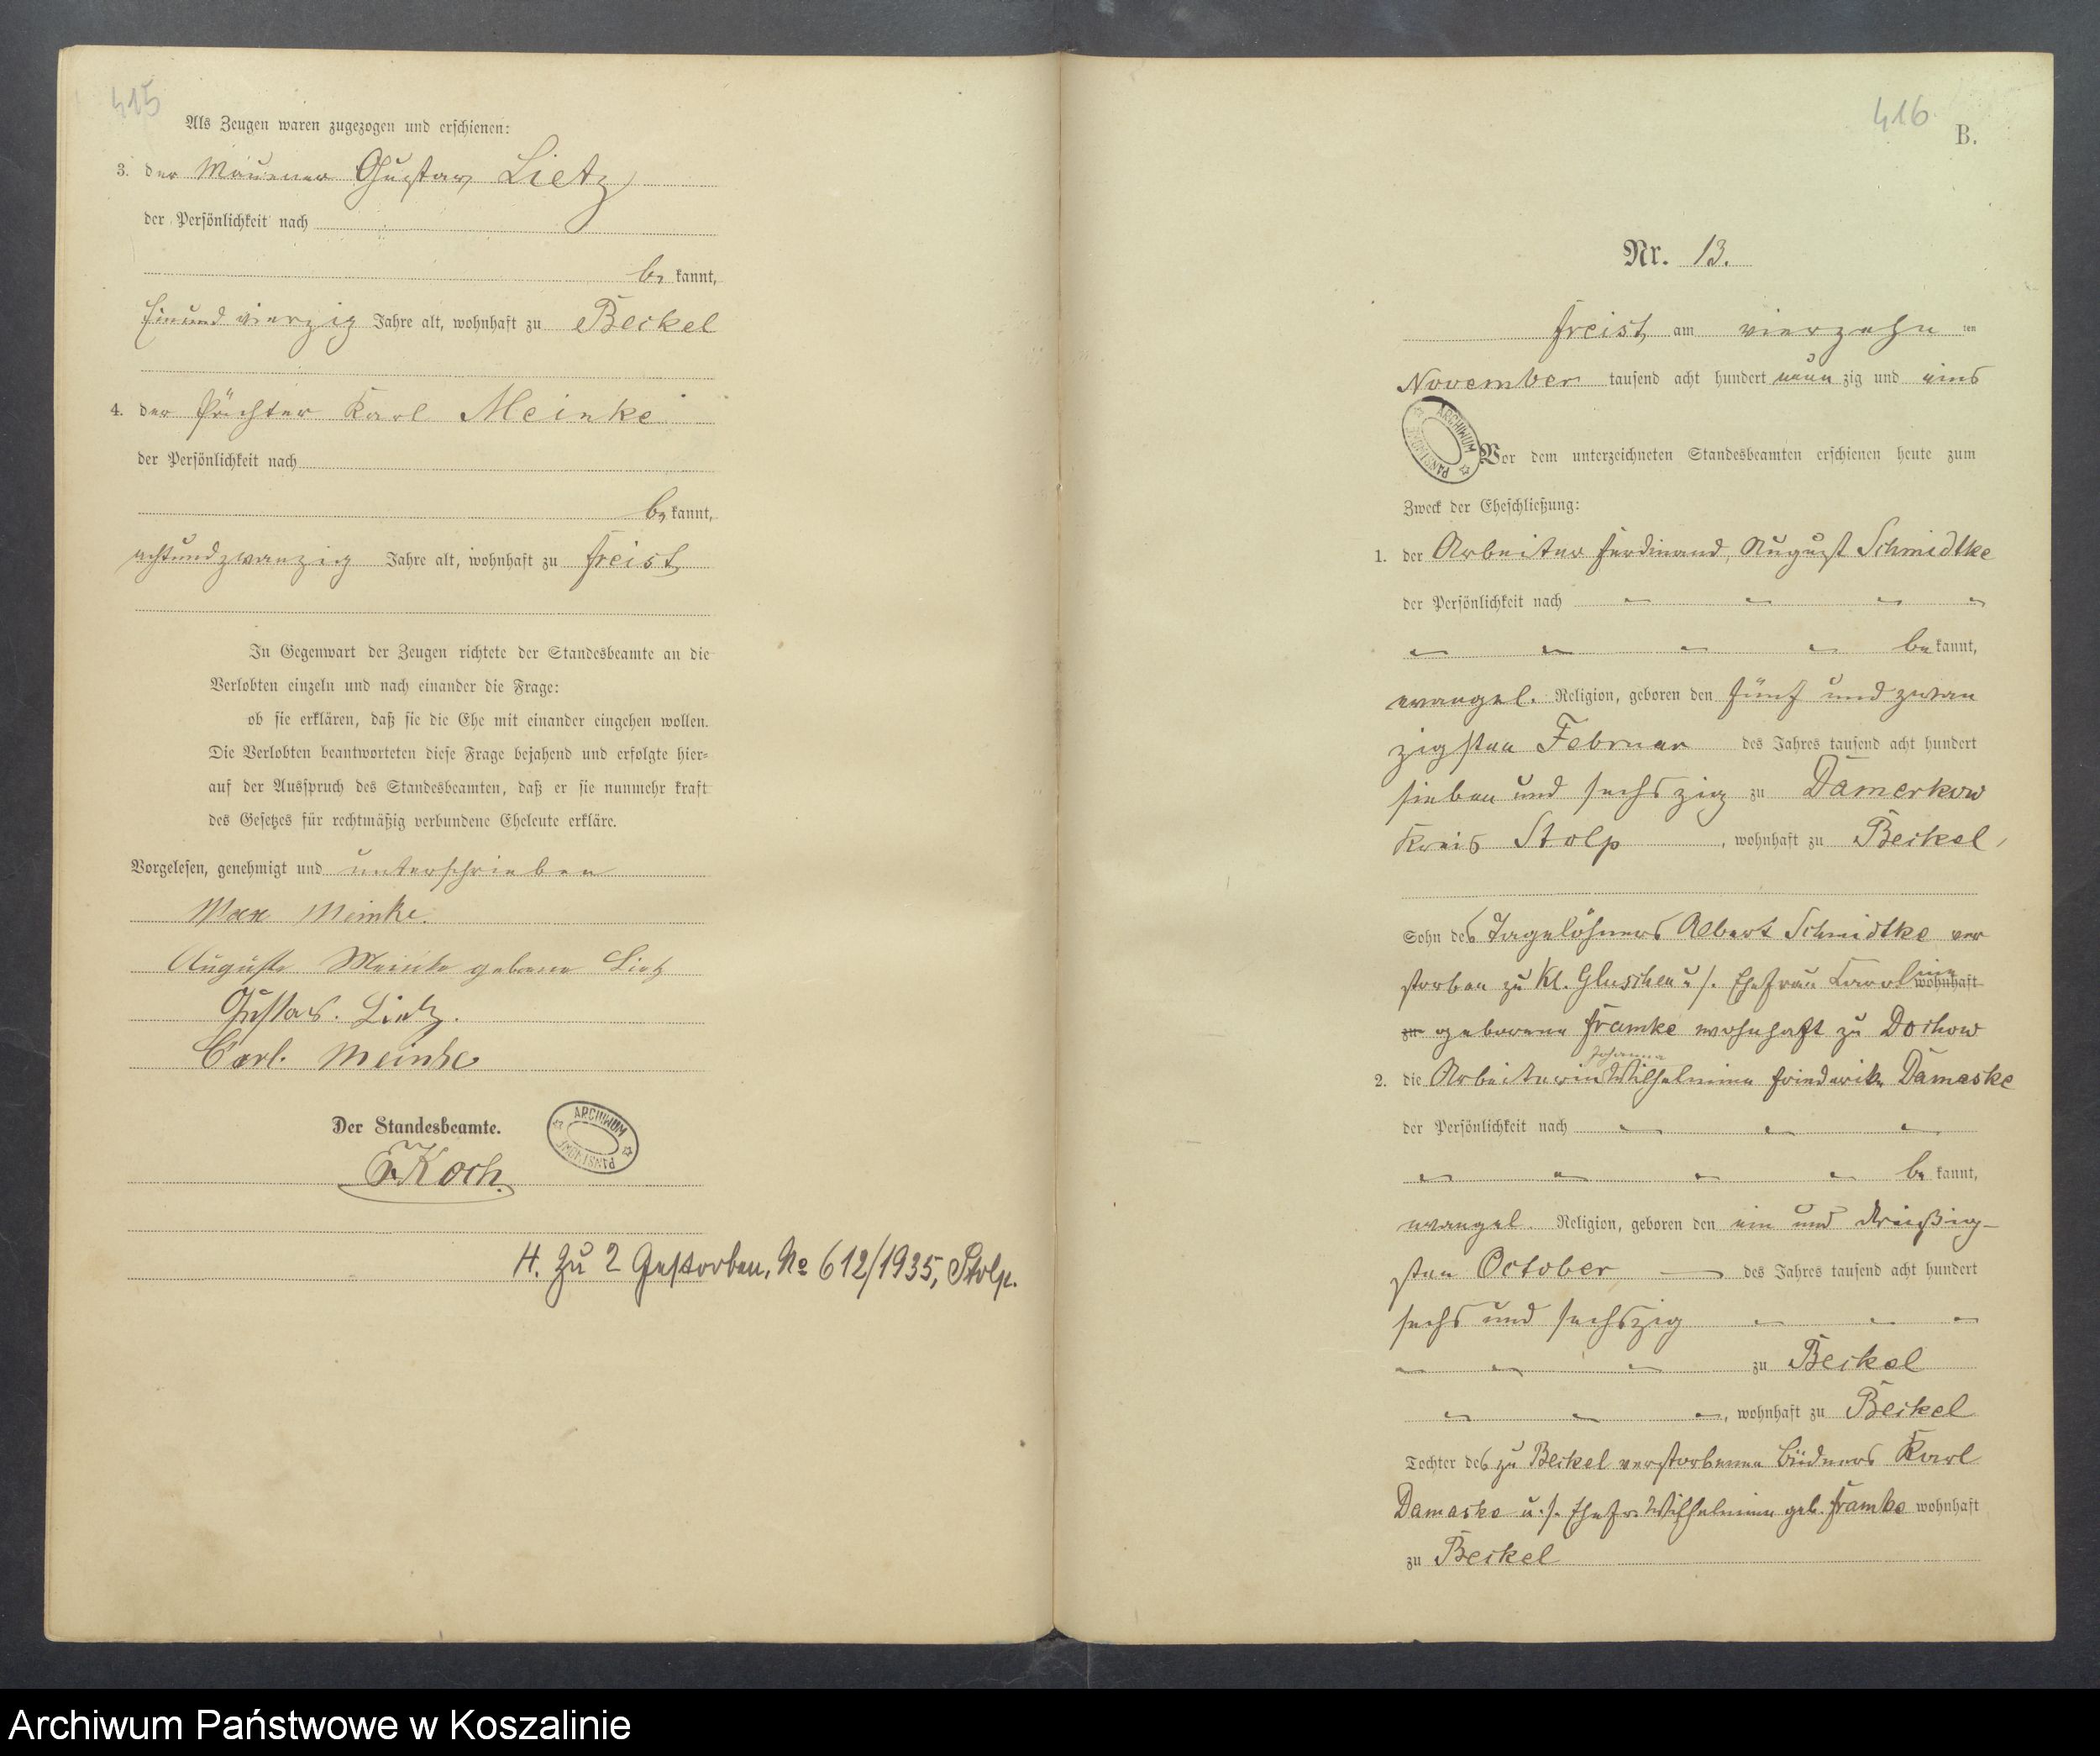 415
Als Zeugen waren zugezogen und erschienen:
3. der Maurer Gustav Lietz
der Persönlichkeit nach
be kannt,
einund vierzig Jahre alt, wohnhaft zu Beckel
4. der Pächter Karl Meinke
der Persönlichkeit nach
be kannt,
achtundzwanzig Jahre alt, wohnhaft zu Freist
In Gegenwart der Zeugen richtete der Standesbeamte an die
Verlobten einzeln und nach einander die Frage:
ob sie erklären, daß sie die Ehe mit einander eingehen wollen.
Die Verlobten beantworteten diese Frage bejahend und erfolgte hier-
auf der Ausspruch des Standesbeamten, daß er sie nunmehr kraft
des Gesetzes für rechtmäßig verbundene Eheleute erkläre.
Vorgelesen, genehmigt und unterschrieben
Max Meinke.
Auguste Meinke geborene Lietz
Gustav. Lietz.
Carl. Meinke
Der Standesbeamte.
ARCHIWUM PAŃSTWOWE
Koch.
H. Zu 2 Gestorben, No 612/1935, Stolp.
416
B.
Nr. 13.
Freist, am vierzehn ten
November tausend acht hundert neun zig und eins
ARCHIWUM PAŃSTWOWE
Vor dem unterzeichneten Standesbeamten erschienen heute zum
Zweck der Eheschließung:
1. der Arbeiter Ferdinand, August Schmidtke
der Persönlichkeit nach
be kannt,
evangel. Religion, geboren den fünf und zwan
zigsten Februar des Jahres tausend acht hundert
sieben und sechszig zu Damerkow
Kreis Stolp, wohnhaft zu Beckel,
Sohn des Tagelöhners Albert Schmidtke ver
storben zu Kl. Gluschen u. s. Ehefrau Karoline wohnhaft
zu geborene Framke wohnhaft zu Dochow
Johanna
2. die Arbeiterin Wilhelmine Friederike Damaske
der Persönlichkeit nach
be kannt,
evangel. Religion, geboren den ein und dreißig-
sten October des Jahres tausend acht hundert
sechs und sechszig
zu Beckel
, wohnhaft zu Beckel
Tochter des zu Beckel verstorbenen Büdners Karl
Damaske u. s. Ehefr. Wilhelmine geb. Framke wohnhaft
zu Beckel
Archiwum Państwowe w Koszalinie